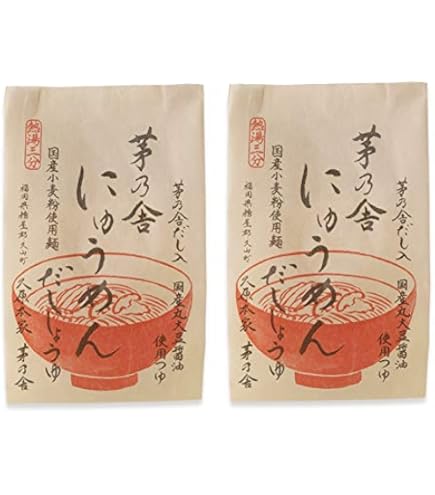 茅乃舎だし入
国産丸大豆醤油
使用つゆ
茅乃舎
にゅうめん
だししょうゆ
熱湯三分
国産小麦粉使用麺
福岡県糟屋郡久山町
久原本家 茅乃舎
茅乃舎だし入
国産丸大豆醤油
使用つゆ
茅乃舎
にゅうめん
だししょうゆ
熱湯三分
国産小麦粉使用麺
福岡県糟屋郡久山町
久原本家 茅乃舎